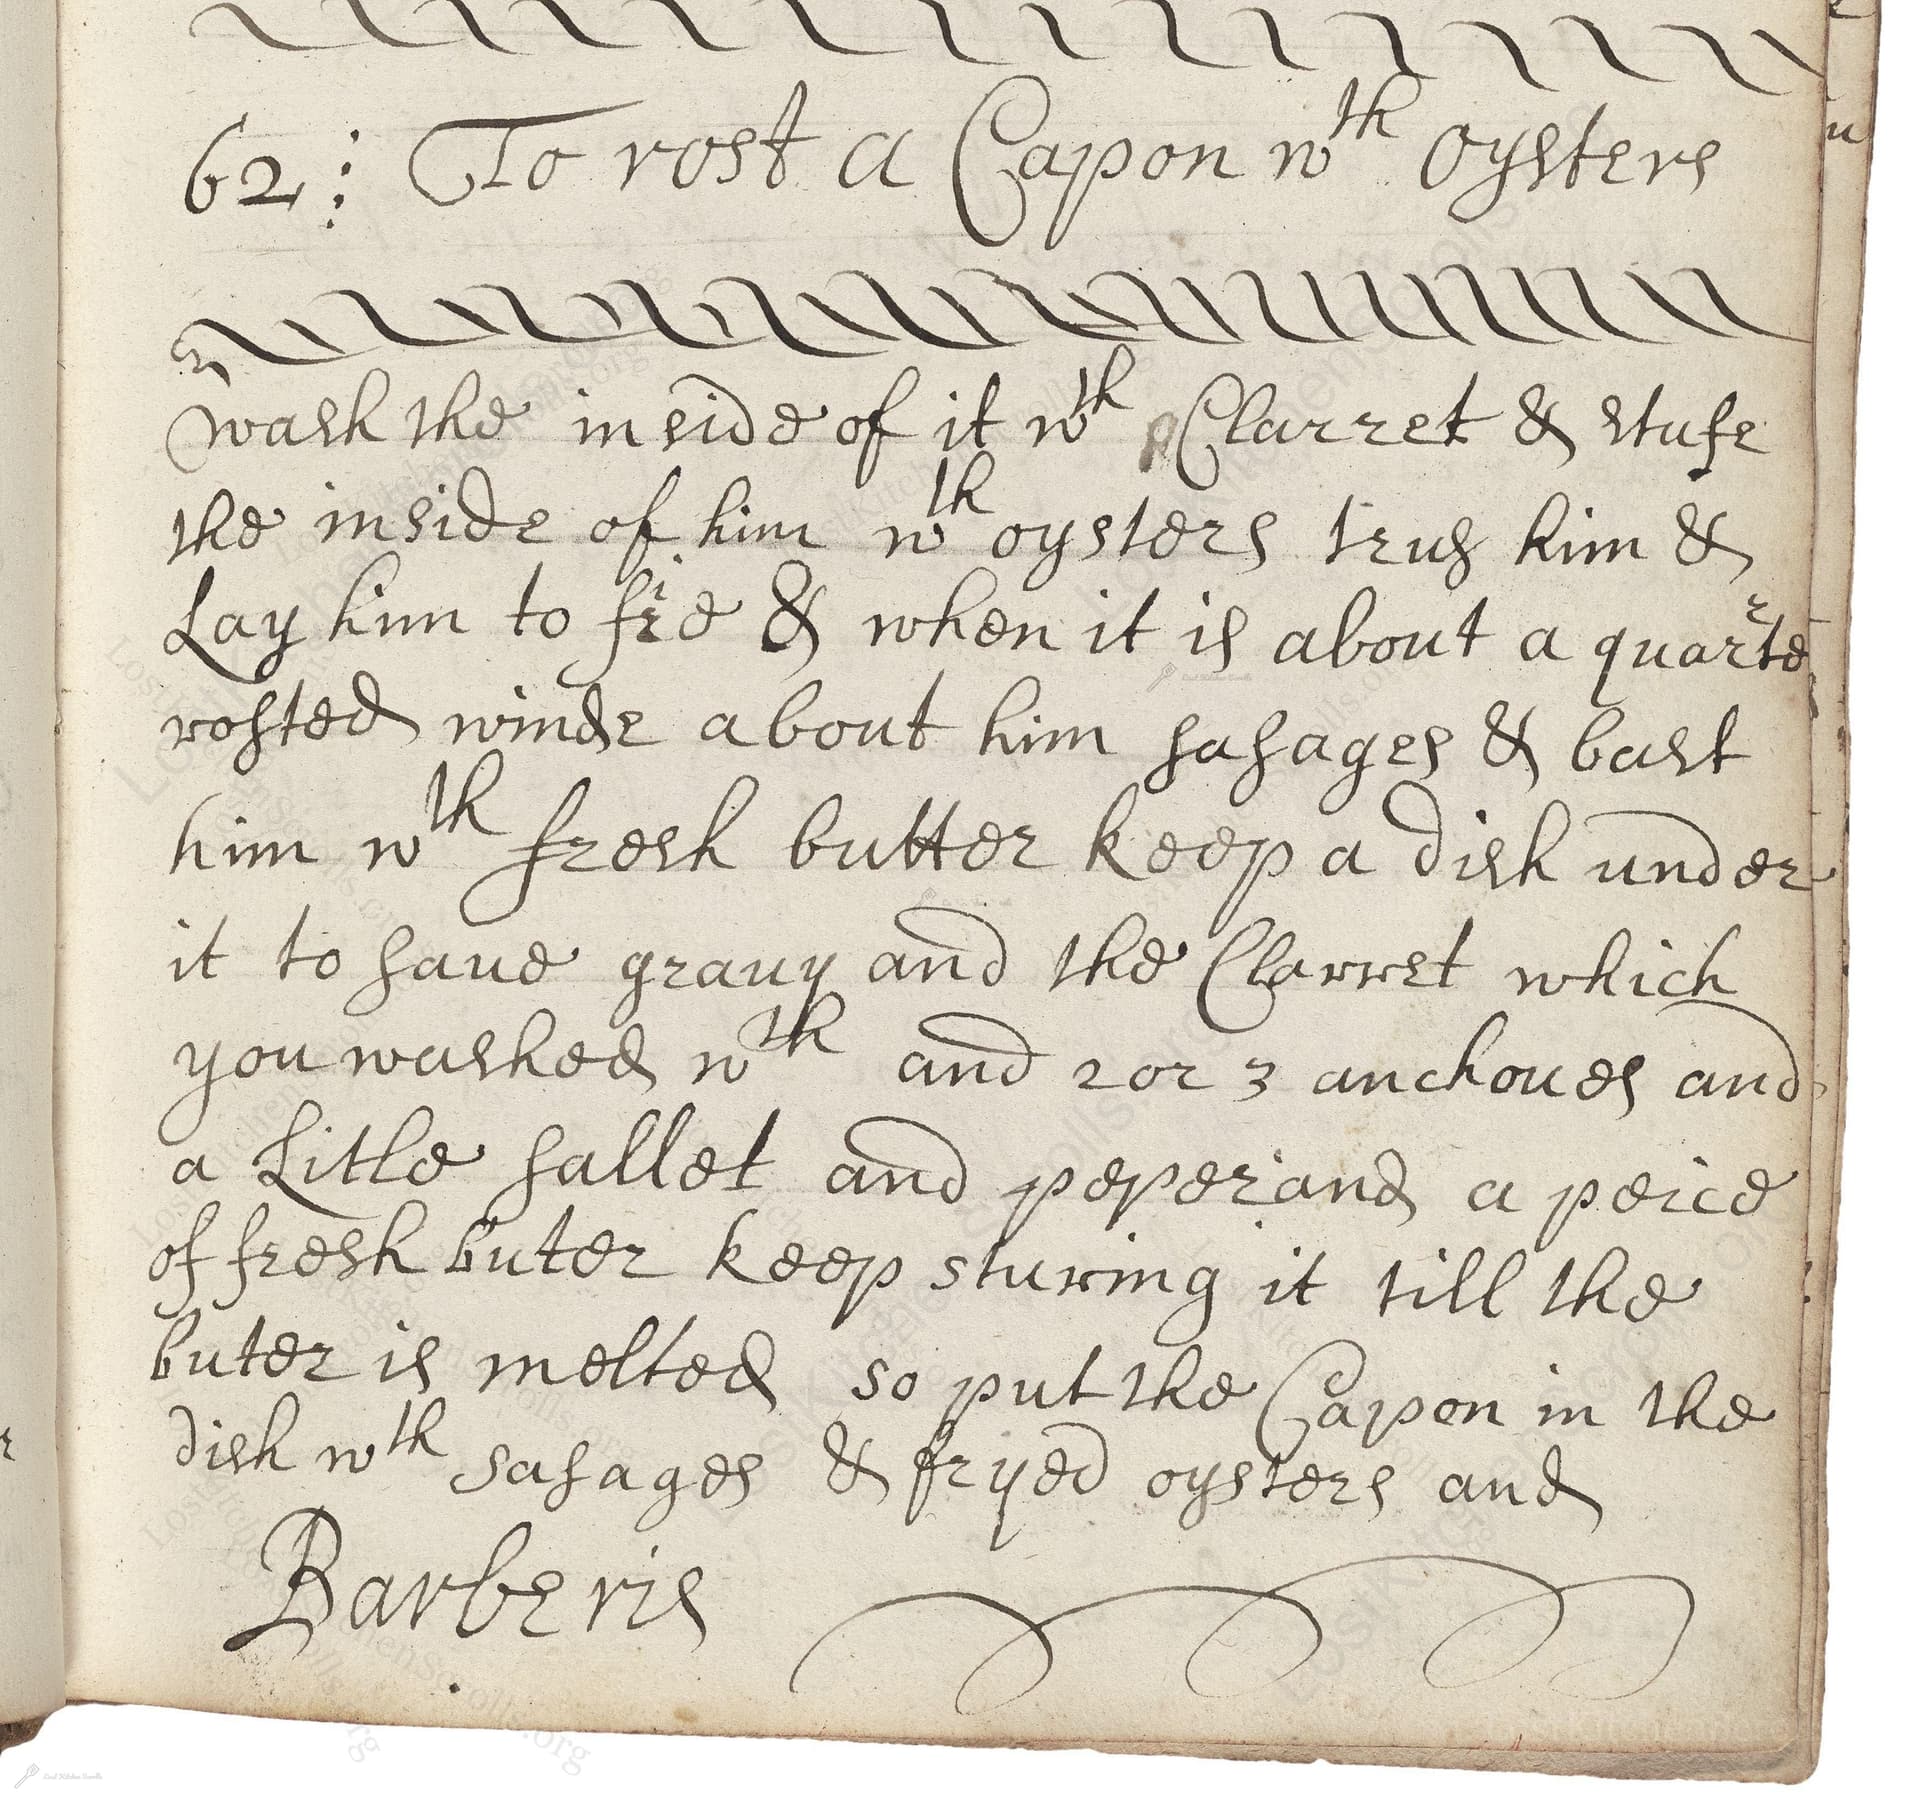 62: To rost a Capon wth Oysters
wash the inside of it wth Clarret & stufe
the inside of him wth oysters trus him &
Lay him to fire & when it is about a quarter
rosted winde about him sasages & bast
him wth fresh butter keep a dish under
it to saue grauy and the Clarret which
you washed wth and 2 or 3 anchoues and
a Litle sallet and peper and a peice
of fresh buter keep sturing it till the
buter is melted so put the Capon in the
dish wth sasages & fryed oysters and
Barberis